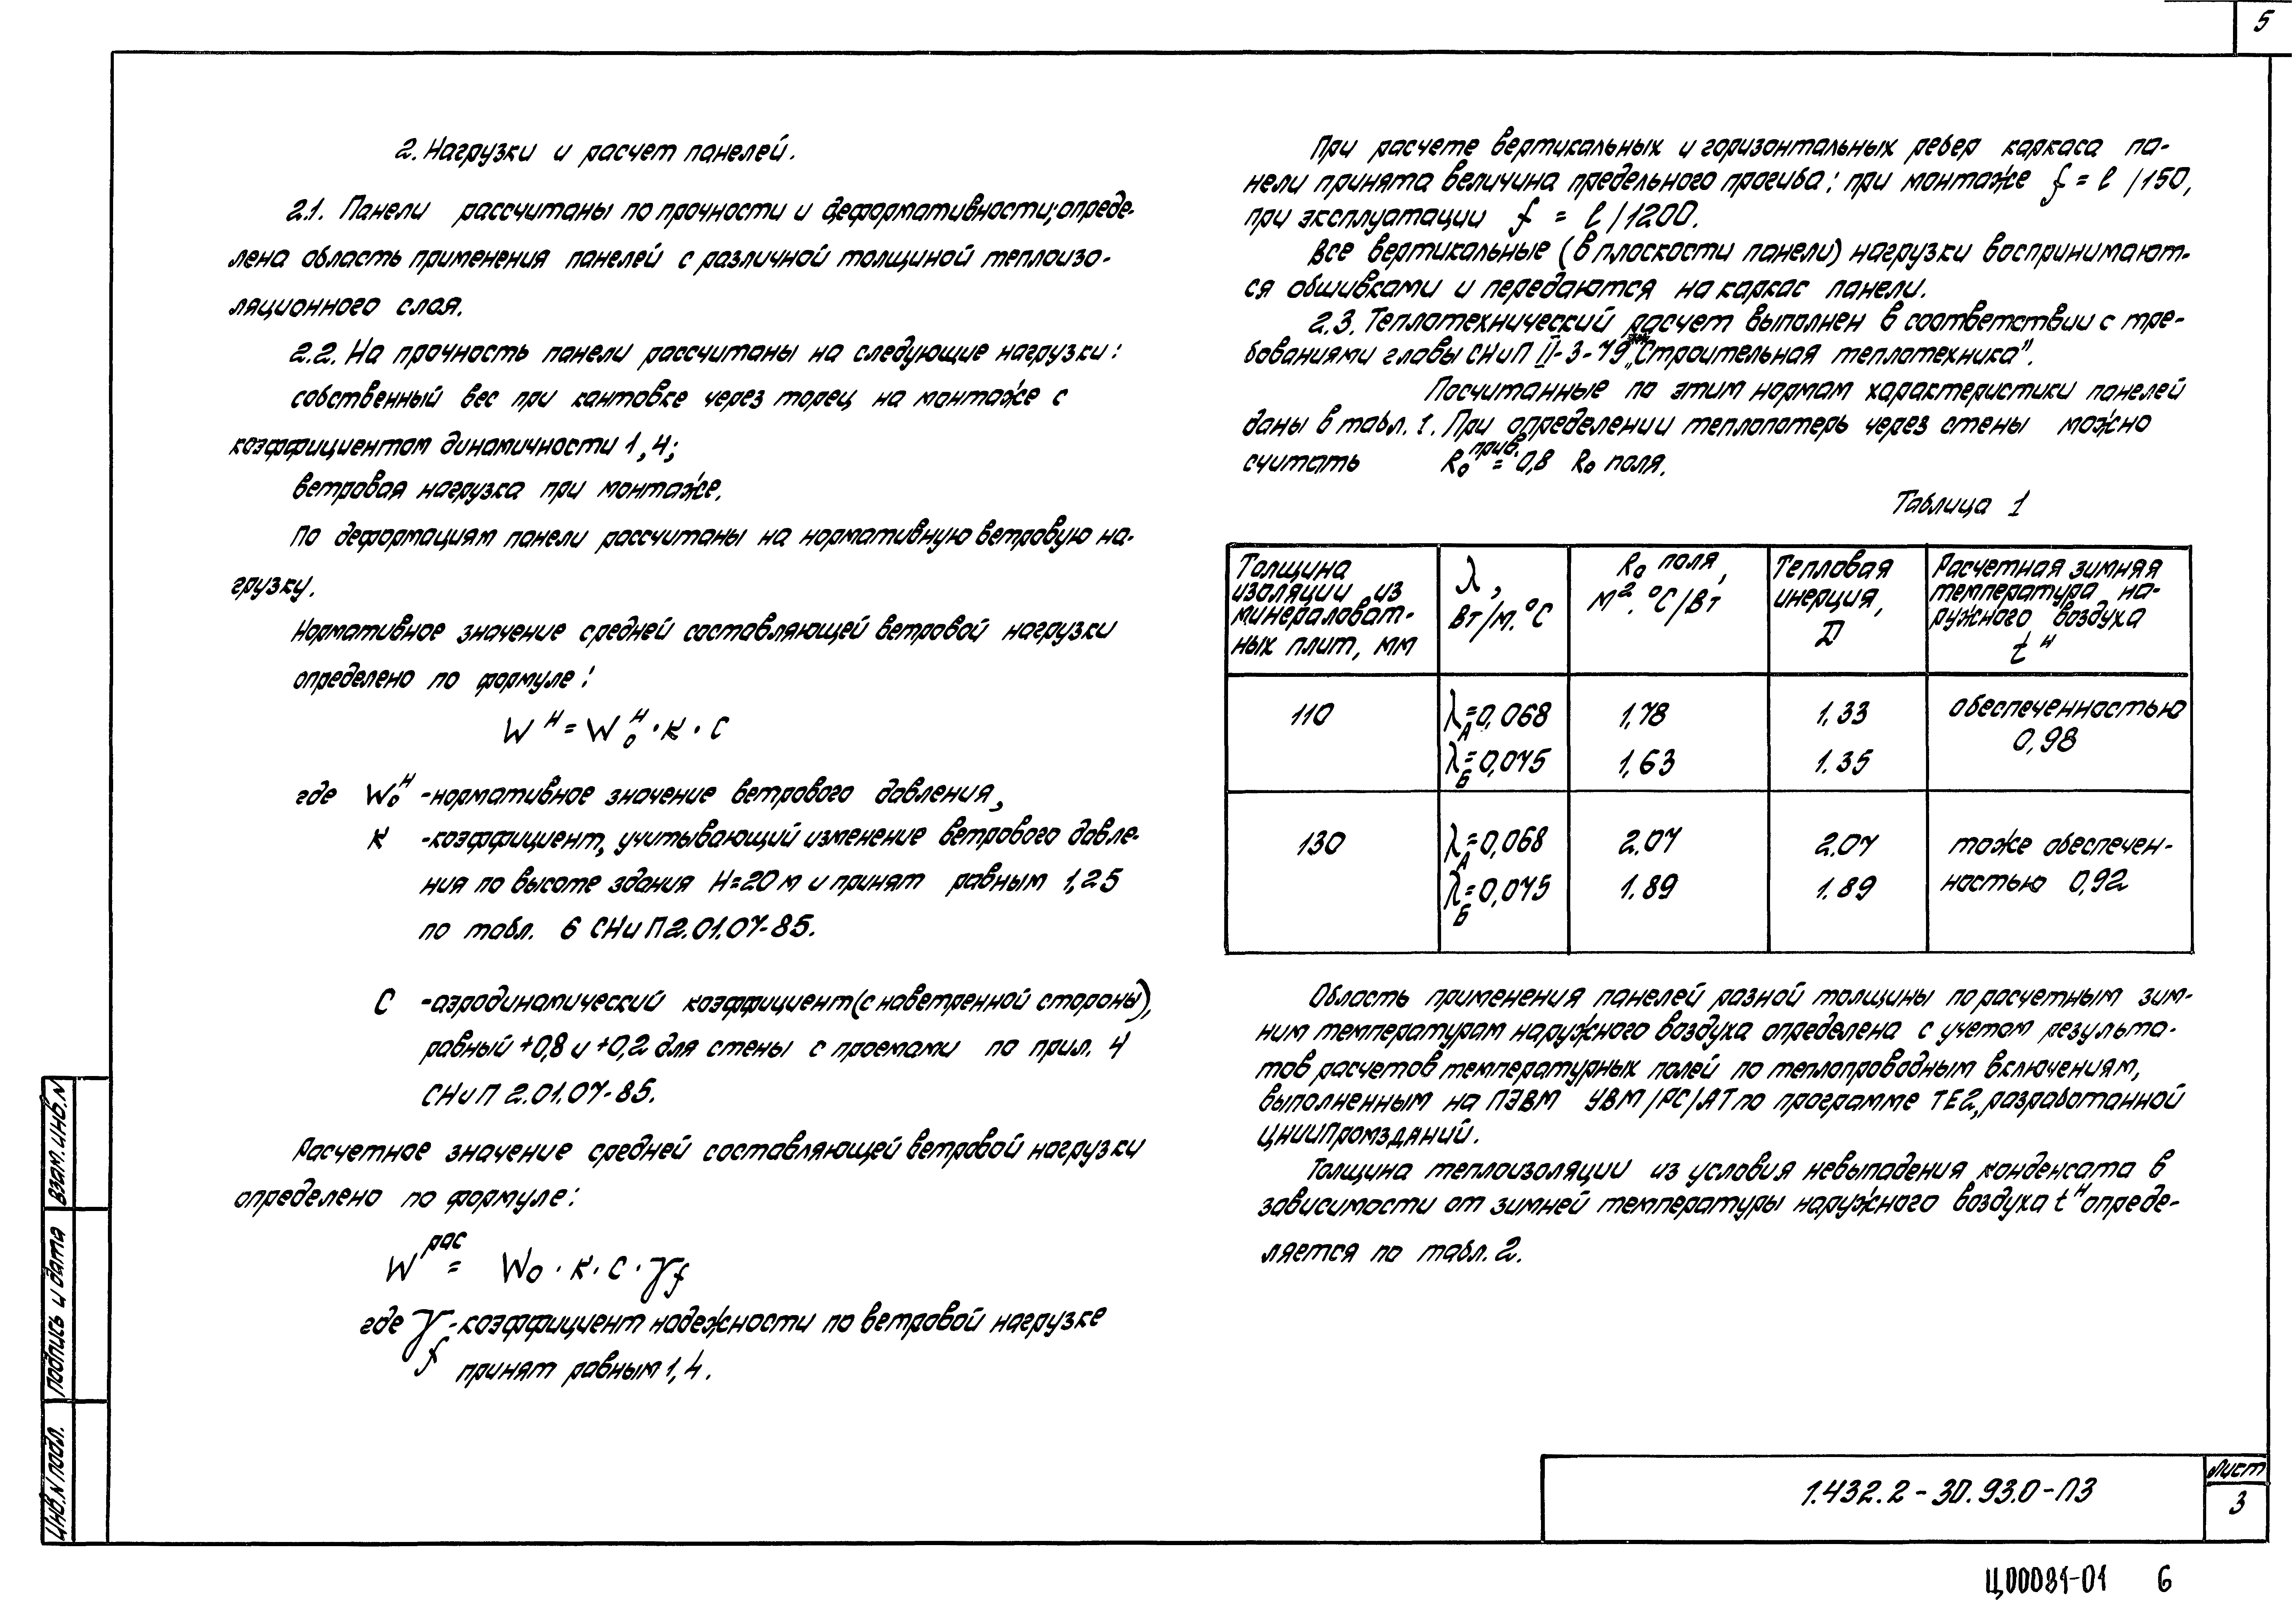 5
2. Нагрузки и расчет панелей.
2.1. Панели рассчитаны по прочности и деформативности; опреде-
лена область применения панелей с различной толщиной теплоизо-
ляционного слоя.
2.2. На прочность панели рассчитаны на следующие нагрузки:
собственный вес при кантовке через торец на монтаже с
коэффициентом динамичности 1,4;
ветровая нагрузка при монтаже.
По деформациям панели рассчитаны на нормативную ветровую на-
грузку.
Нормативное значение средней составляющей ветровой нагрузки
определено по формуле:
W^н = W₀^н · К · С
где W₀^н - нормативное значение ветрового давления,
К - коэффициент, учитывающий изменение ветрового давле-
ния по высоте здания Н=20м и принят равным 1,25
по табл. 6 СНиП 2.01.07-85.
С - аэродинамический коэффициент (с наветренной стороны),
равный +0,8 и +0,2 для стены с проемами по прил. 4
СНиП 2.01.07-85.
Расчетное значение средней составляющей ветровой нагрузки
определено по формуле:
W^рас = W₀ · К · С · γf
где γf - коэффициент надежности по ветровой нагрузке
принят равным 1,4.
При расчете вертикальных и горизонтальных ребер каркаса па-
нели принята величина предельного прогиба: при монтаже f = l /150,
при эксплуатации f = l /1200.
Все вертикальные (в плоскости панели) нагрузки воспринимают-
ся обшивками и передаются на каркас панели.
2.3. Теплотехнический расчет выполнен в соответствии с тре-
бованиями главы СНиП II-3-79** „Строительная теплотехника".
Посчитанные по этим нормам характеристики панелей
даны в табл. 1. При определении теплопотерь через стены можно
считать R₀^прив. = 0,8 R₀ поля.
Таблица 1
Толщина изоляции из минераловат- ных плит, мм | λ, Вт/м.°С | R₀ поля, м². °С/Вт | Тепловая инерция, D | Расчетная зимняя температура на- ружного воздуха t^н
110 | λА=0,068 | 1,78 | 1,33 | обеспеченностью
λБ=0,075 | 1,63 | 1.35 | 0,98
130 | λА=0,068 | 2.07 | 2.07 | тоже обеспечен-
λБ=0,075 | 1.89 | 1.89 | ностью 0,92
Область применения панелей разной толщины по расчетным зим-
ним температурам наружного воздуха определена с учетом результа-
тов расчетов температурных полей по теплопроводным включениям,
выполненным на ПЭВМ УВМ/РС/АТ по программе ТЕ2, разработанной
ЦНИИПромзданий.
Толщина теплоизоляции из условия невыпадения конденсата в
зависимости от зимней температуры наружного воздуха t^н опреде-
ляется по табл. 2.
Взам. инв. N
Подпись и дата
Инв. N подл.
1.432.2-30.93.0-ПЗ
Лист
3
Ц00081-01 6